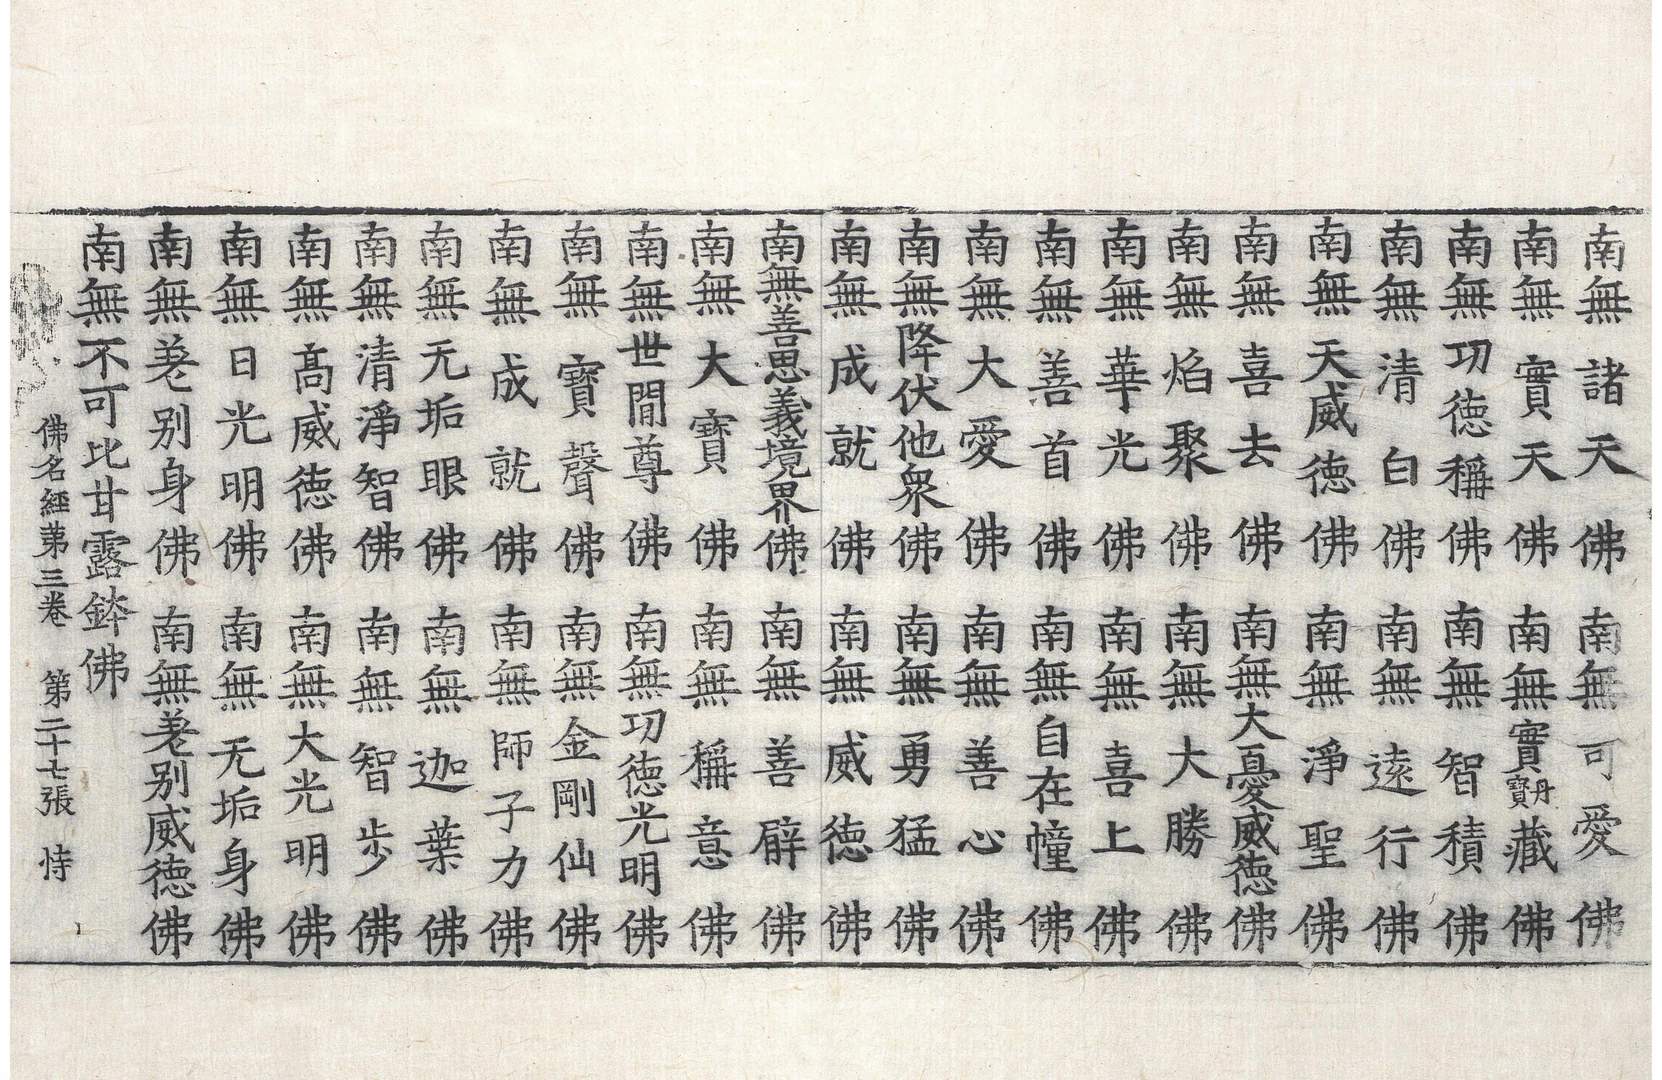 南無諸天佛 南無可愛佛
南無實天佛 南無實丹寶藏佛
南無功德稱佛 南無智積佛
南無清白佛 南無遠行佛
南無天威德佛 南無淨聖佛
南無喜去佛 南無大憂威德佛
南無焰聚佛 南無大勝佛
南無華光佛 南無喜上佛
南無善首佛 南無自在幢佛
南無大愛佛 南無善心佛
南無降伏他衆佛 南無勇猛佛
南無成就佛 南無威德佛
南無善思義境界佛 南無善辟佛
南無大寶佛 南無稱意佛
南無世間尊佛 南無功德光明佛
南無寶聲佛 南無金剛仙佛
南無成就佛 南無師子力佛
南無无垢眼佛 南無迦葉佛
南無清淨智佛 南無智步佛
南無高威德佛 南無大光明佛
南無日光明佛 南無无垢身佛
南無差别身佛 南無差别威德佛
南無不可比甘露鉢佛
佛名經苐三卷 第二十七張 恃